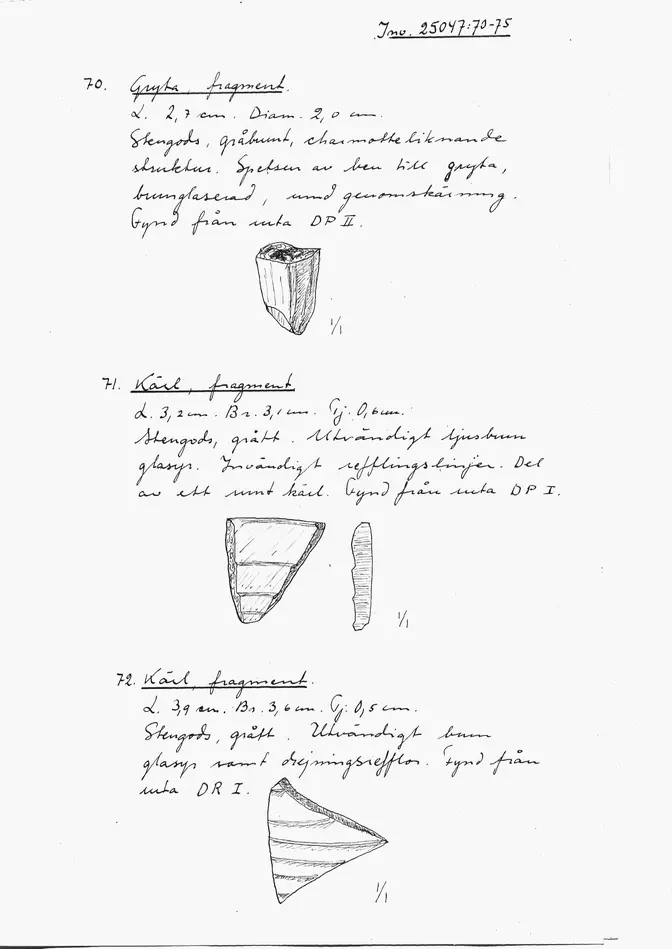 Inv. 25047:70-75
70. Gryta, fragment.
L. 2,7 cm. Diam. 2,0 cm.
Stengods, gråbrunt, charmotteliknande
struktur. Spetsen av ben till gryta,
brunglaserad, rund genomskärning.
Fynd från ruta DP II.
1/1
71. Kärl, fragment
L. 3,2 cm. Br. 3,1 cm. Tj. 0,6 cm.
Stengods, grått. Utvändigt ljusbrun
glasyr. Invändigt refflingslinjer. Del
av ett runt kärl. Fynd från ruta DP I.
1/1
72. Kärl, fragment.
L. 3,9 cm. Br. 3,6 cm. Tj. 0,5 cm.
Stengods, grått. Utvändigt brun
glasyr samt drejningsrefflor. Fynd från
ruta DR I.
1/1